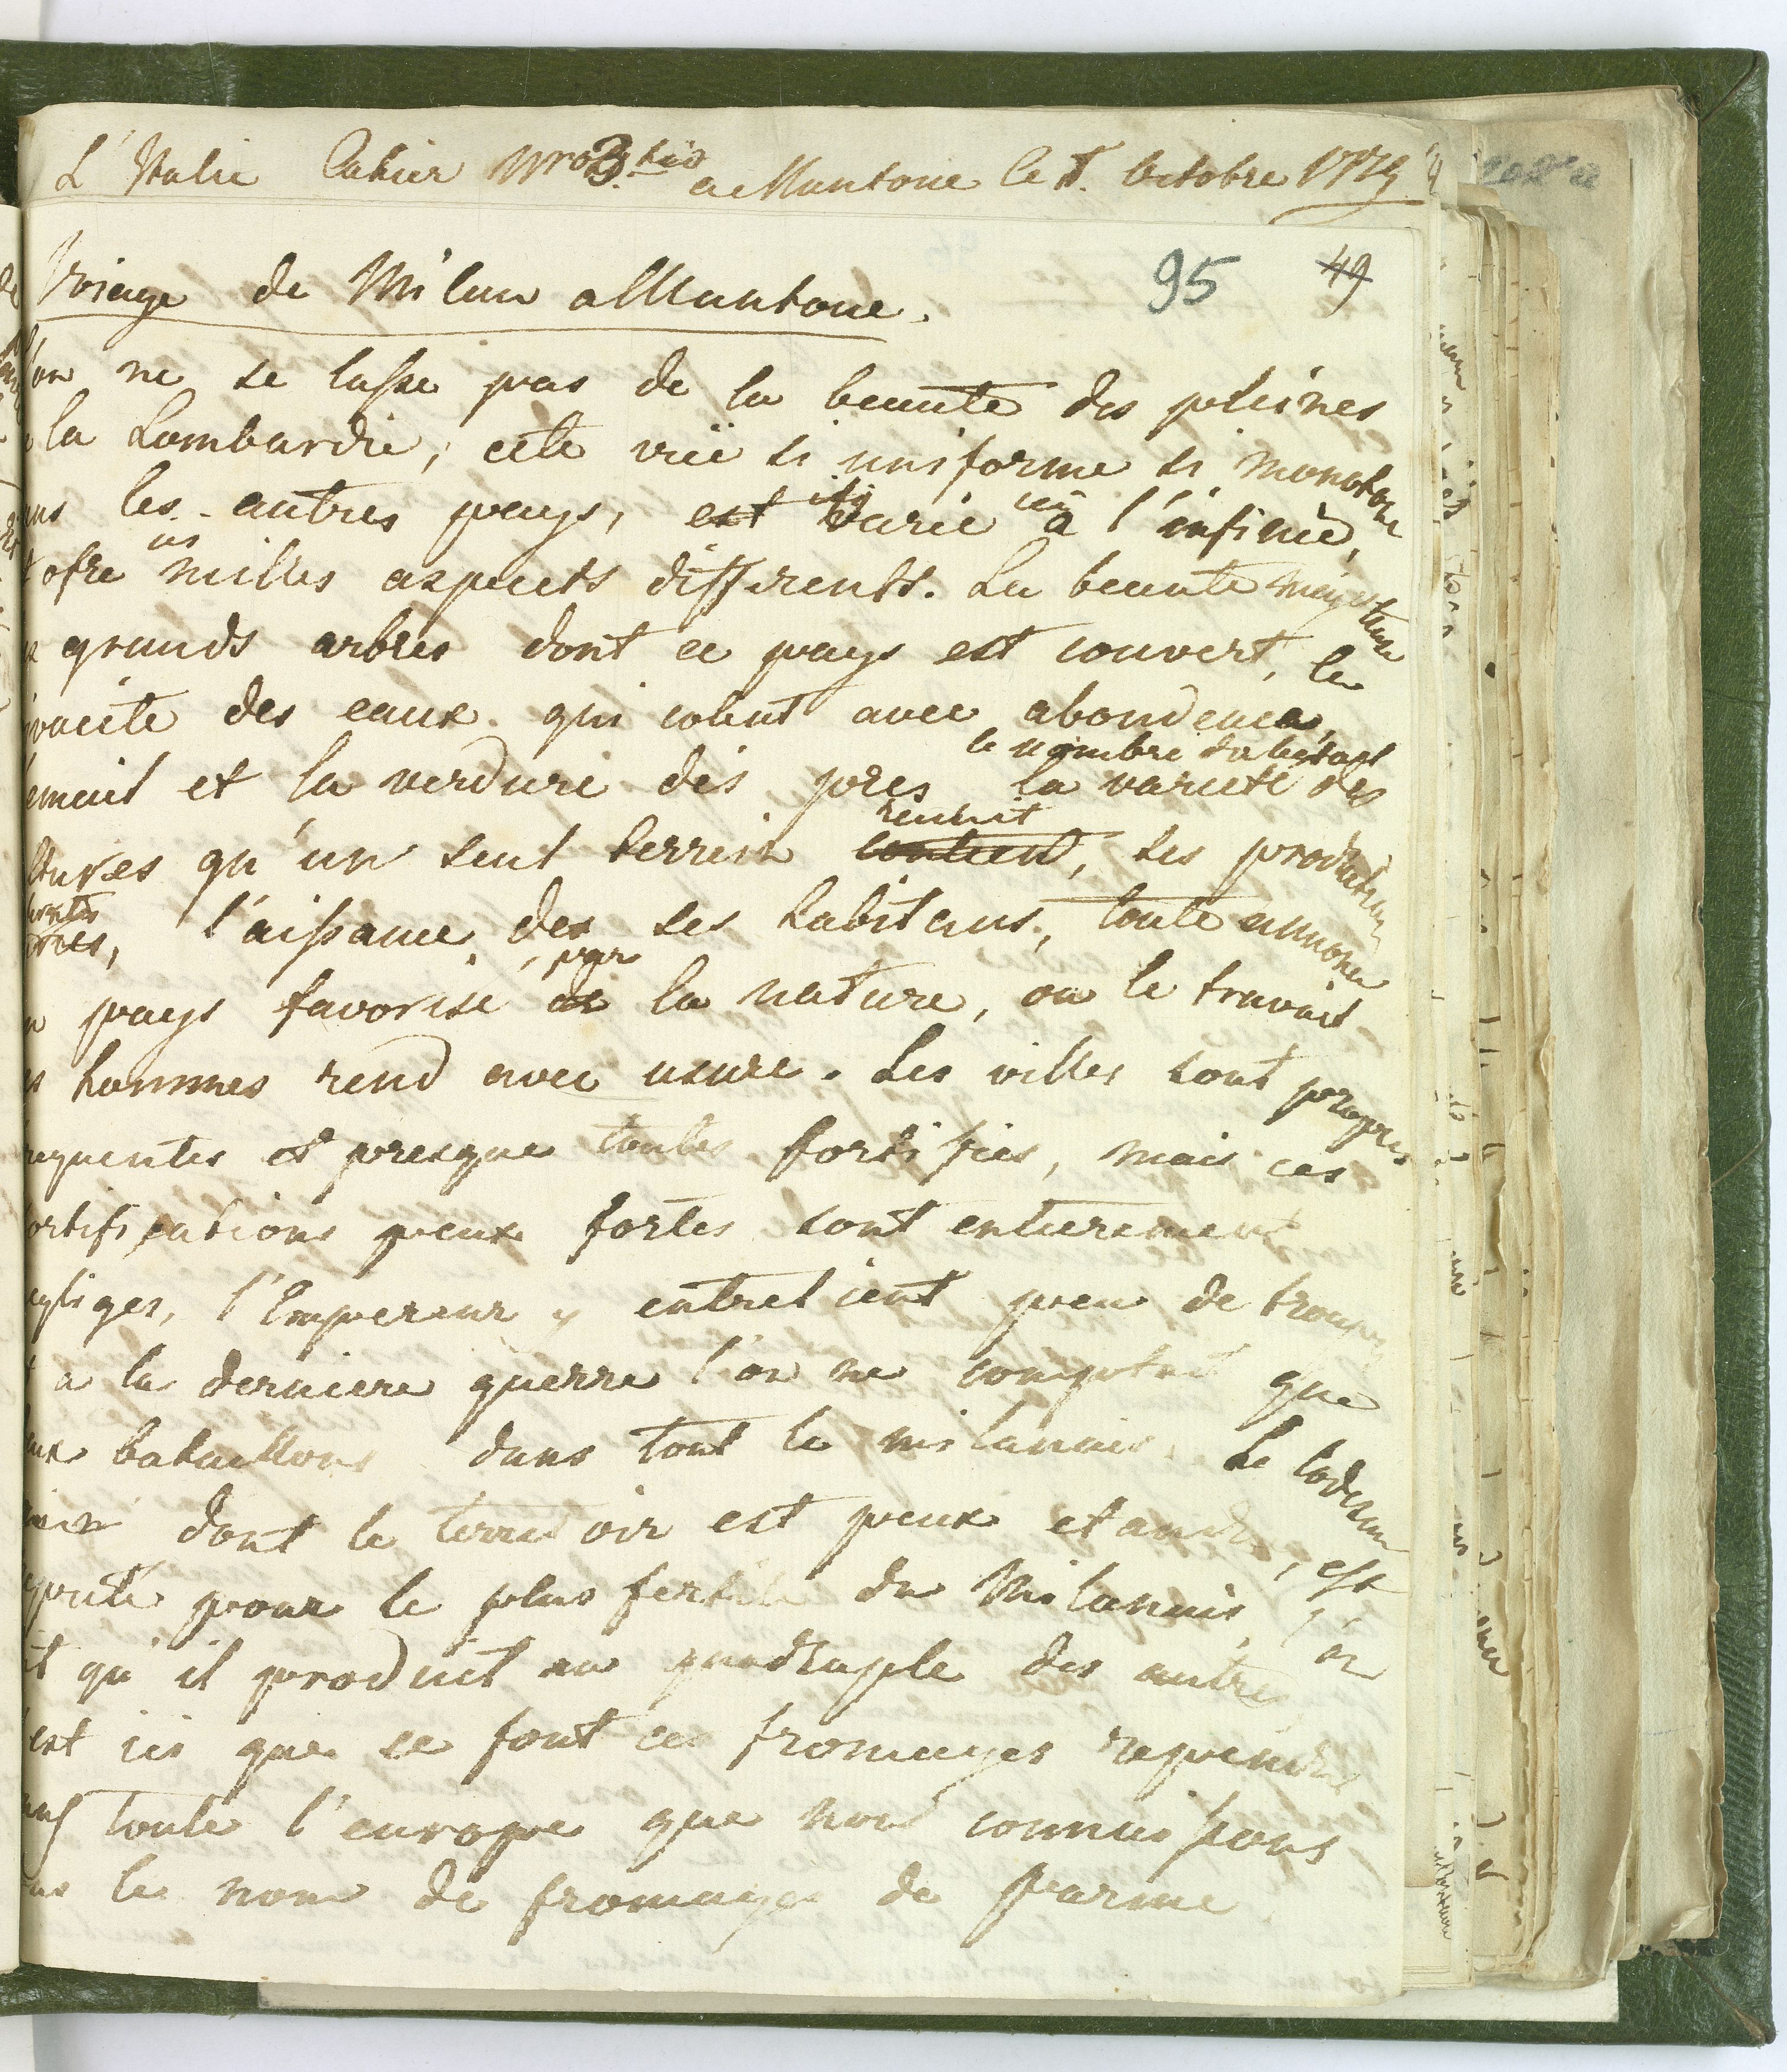 L'Italie Cahier Nro 3. bis a Mantoue le 8. Octobre 1779
Voiage de Milan a Mantoue. 95 49
l'on ne se lasse pas de la beaute des pleines
la Lombardie, cete vüe si uniforme si monotone
les autres pays, est varie ici à l'infinie,
ofre milles aspects differents. La beaute majes
grands arbres dont ce pays est couvert, la
vacite des eaux qui colent avec abondence,
le nombre du betail
email et la verdure des pres la varieté des
produit
ltures qu'un seul terrein contient, ses productions
l'aissance des ses habitans, toute annonce
par
pays favorisé de la nature, ou le travail
hommes rend avec usure. Les villes sont propres
frequentes et presque toutes fortifies, mais ces
fortifications peux fortes sont entierement
negliges, l'Empereur y entretient peu de troupes
a la derniere guerre l'on ne comptoit que
bataillons dans tout le milanais. Le lodesan
dont le terroir est peux etandu, est
repute pour le plus fertile du Milanais, l'on
qu'il produit au quadruple des autres
est ici que se font ces fromages repandus
toute l'europe que nous connaissons
le nom de fromages de Parme